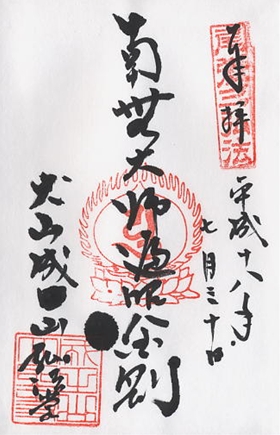 奉拝
平成十八年
七月三十日
南無大師遍照金剛
犬山成田山弘法堂